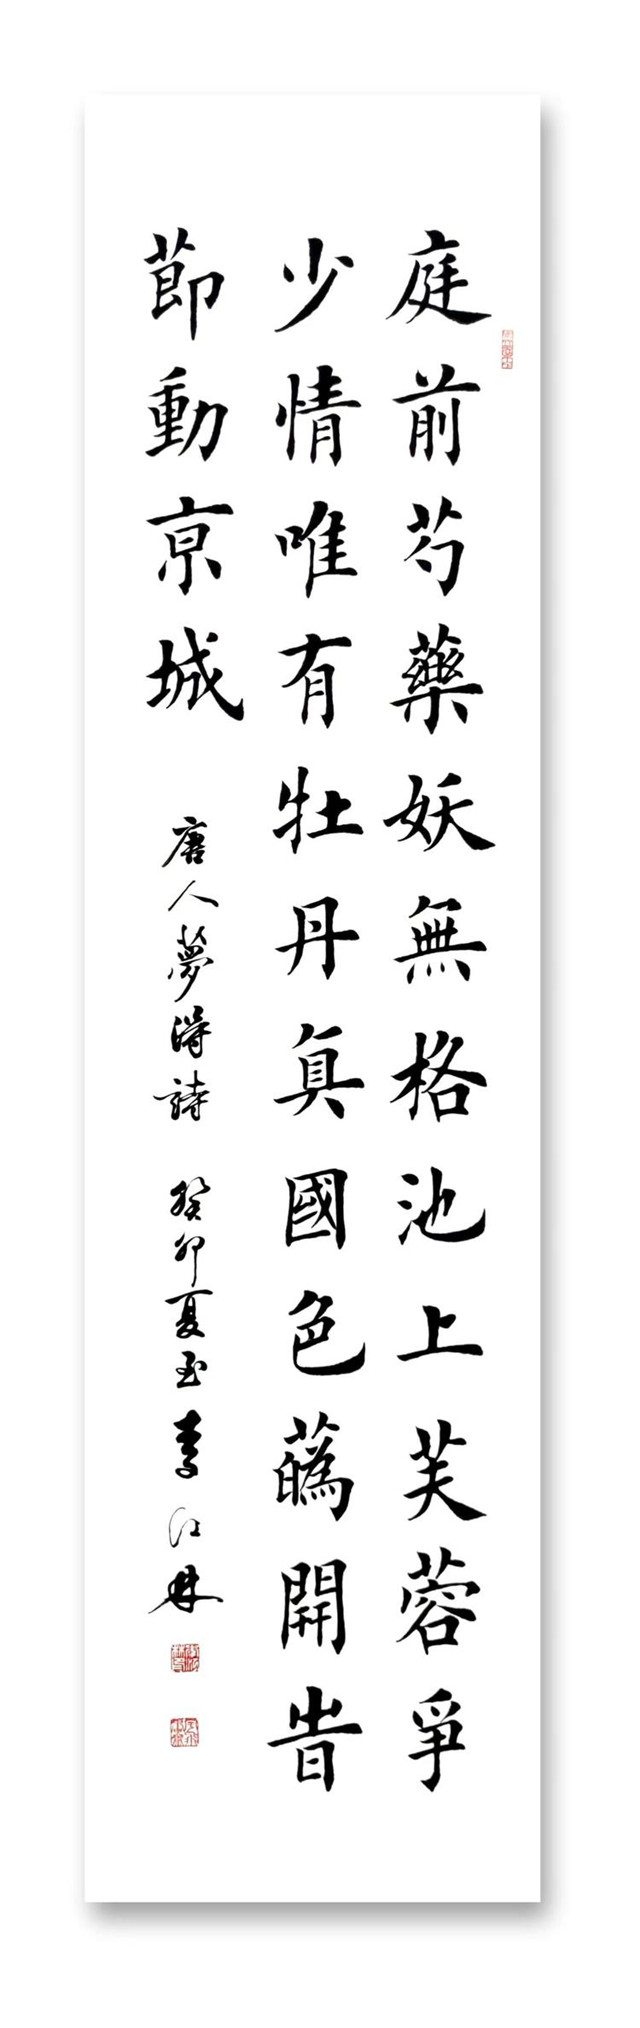 庭前芍藥妖無格池上芙蓉爭
少情唯有牡丹真國色蘤開旹
莭動亰城 唐人夢得詩 癸卯夏至李江林